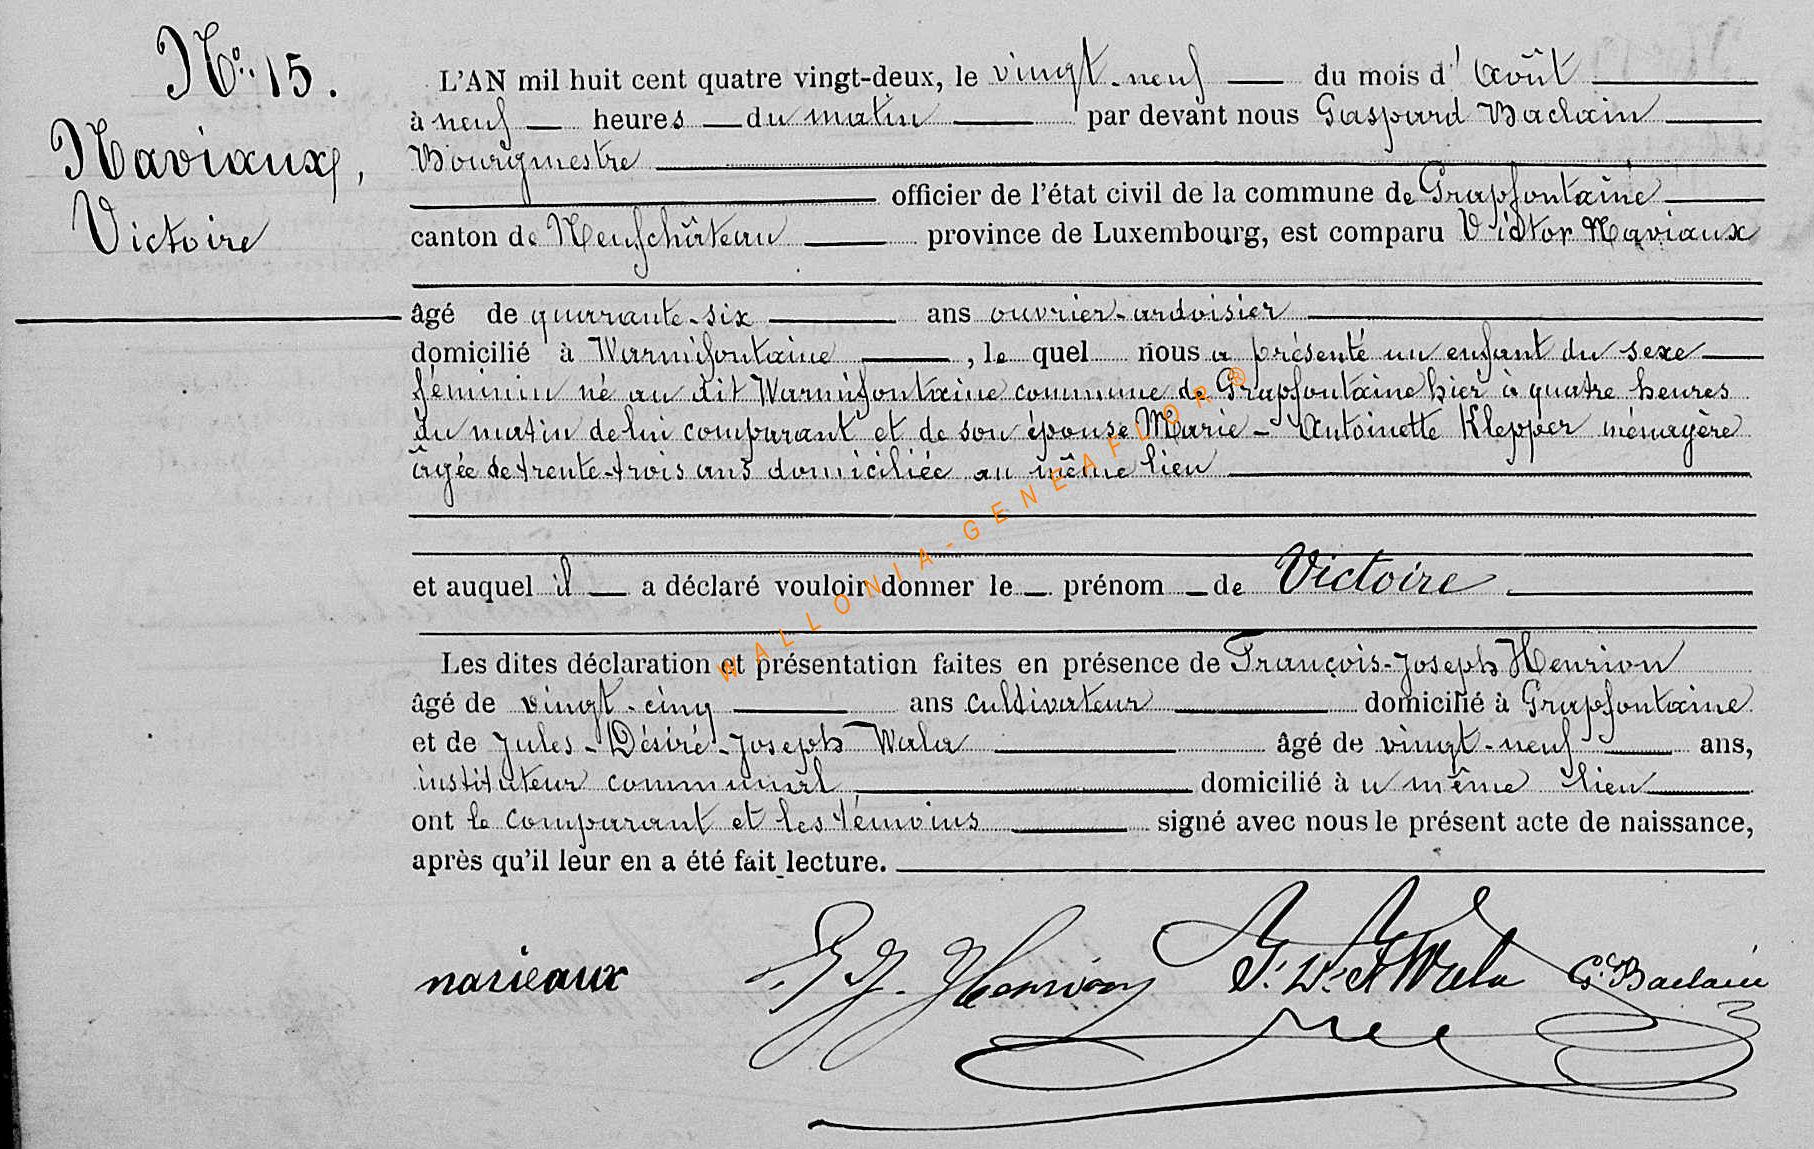 N°: 15.
Naviaux,
Victoire
L'AN mil huit cent quatre vingt-deux, le vingt-neuf du mois d'Août
à neuf heures du matin par devant nous Gaspard Baclain
Bourgmestre
officier de l'état civil de la commune de Grapfontaine
canton de Neufchâteau province de Luxembourg, est comparu Victor Naviaux
âgé de quarante-six ans ouvrier-ardoisier
domicilié à Warmifontaine, le quel nous a présenté un enfant du sexe
féminin né au dit Warmifontaine commune de Grapfontaine hier à quatre heures
du matin de lui comparant et de son épouse Marie-Antoinette Klepper ménagère
âgée de trente-trois ans domiciliée au même lieu
et auquel il a déclaré vouloir donner le prénom de Victoire
Les dites déclaration et présentation faites en présence de François-Joseph Henrion
âgé de vingt-cinq ans cultivateur domicilié à Grapfontaine
et de Jules-Désiré-Joseph Wala âgé de vingt-neuf ans,
instituteur communal domicilié à u même lieu
ont le comparant et les témoins signé avec nous le présent acte de naissance,
après qu'il leur en a été fait lecture.
navieaux F. J. Henrion J. D. J Wala G. Baclain
WALLONIA-GENEAFLOR®